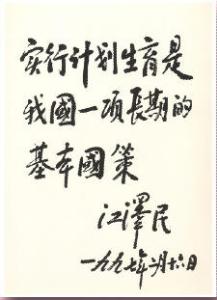 实行计划生育是
我國一项長期的
基本國策
江澤民
一九九七年月十六日